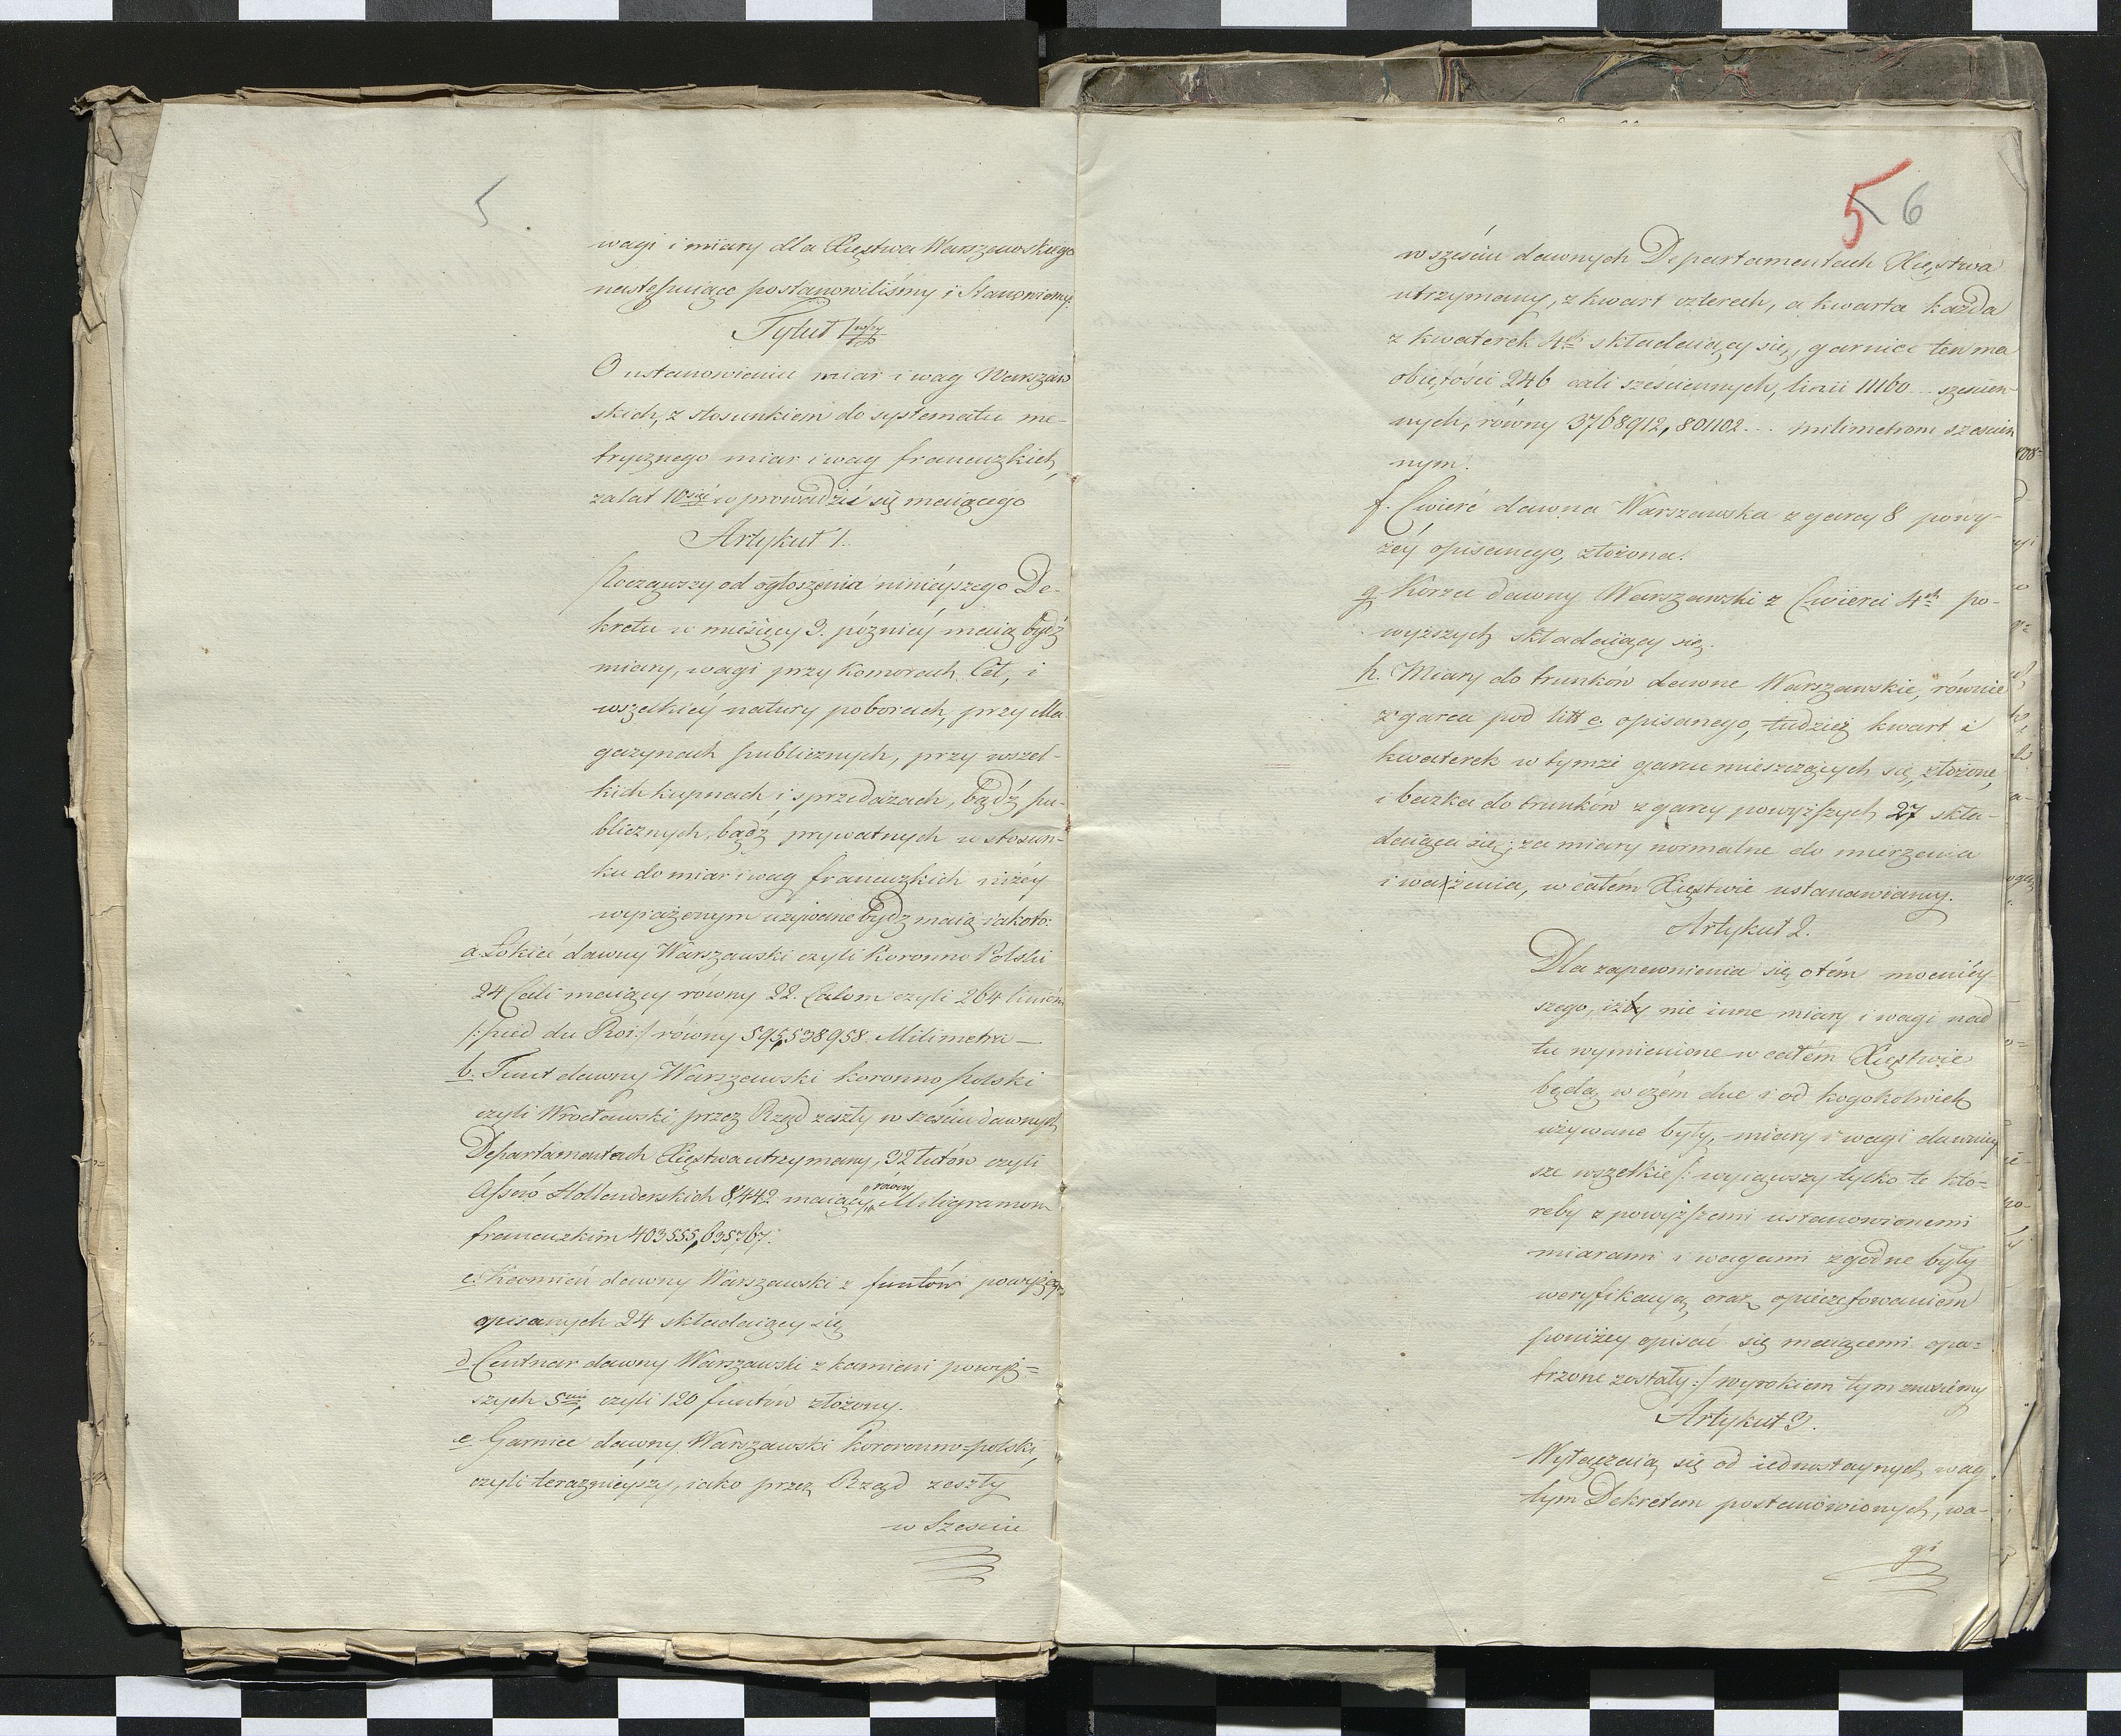 5
wagi i miary dla Xięstwa Warszawskiego
następuiące postanowiliśmy i Stanowiemy.
Tytuł 1wszy
O ustanowieniu miar i wag Warszaw
skich, z stosunkiem do systematu me-
trycznego miar i wag francuzkich,
za lat 10sięć wprowadzić się maiącego
Artykuł 1.
Począwszy od ogłoszenia ninieyszego De-
kretu w miesięcy 3. pózniey maią bydź
miary, wagi przy Komorach Ceł, i
wszelkiey natury poborach, przy Ma
gazynach publicznych, przy wszel-
kich kupnach i sprzedażach, bądź pu-
blicznych, bądź prywatnych w stosun-
ku do miar i wag francuzkich niżéy
wyrażonym używane bydz maią iakoto:
a Łokieć dawny Warszawski czyli Koronno Polski
24 Cali maiący równy 22. Calom czyli 264 liniom
/:pied du Roi:/ równy 595,538958. Milimetra —
b. Funt dawny Warszawski koronno polski
czyli Wrocławski przez Rząd zeszły w sześciu dawnych
Departamentach Xięstwa utrzymany, 32 łutów czyli
Assów Hollenderskich 8,442 maiący, równy Miligramom
francuzkim 403555,635767.
c. Kamień dawny Warszawski z funtów powyżey
opisanych 24 składaiący się
d Centnar dawny Warszawski z kamieni powyż=
szych 5ciu, czyli 120 funtów złożony.
e Garniec dawny Warszawski kororonno-polski,
czyli teraznieyszy, iako przez Rząd zeszły
w Szesciu
5 6
w sześciu dawnych Departamentach Xięstwa
utrzymany, z kwart czterech, a kwarta każda
z kwaterek 4ch składaiący się, garniec ten ma
obiętości 246 cali sześciennych, linii 11160 ... szescien-
nych, równy 3768912,801102 ... milimetrom szescien
nym.
f. Cwierć dawna Warszawska z garcy 8 powy-
żéy opisanego, złożona.
g Korzec dawny Warszawski z Cwierci 4ch po-
wyższych składaiący się.
h. Miary do trunków dawne Warszawskie, równie
z garca pod litt e. opisanego, tudzież kwart i
kwaterek w tymże garcu mieszczących się, złożone,
i beczka do trunków z garcy powyższych 27 skła-
daiąca się; za miary normalne do mierzenia
i ważenia, w całém Xięstwie ustanawiamy.
Artykuł 2.
Dla zapewnienia się o tém mocniéy
szego, iżby nie inne miary i wagi nad
tu wymienione w całém Xięstwie
będą w czém due i od kogokolwiek
używane były, miary i wagi dawniey
sze wszelkie /: wyiąwszy tylko te któ-
reby z powyższemi ustanowionemi
miarami i wagami zgodne były
weryfikacyą oraz opieczętowaniem
poniżey opisać się maiącemi opa=
trzone zostały :/ wyrokiem tym znosiemy
Artykuł 3.
Wyłączaią się od iednostaynych wag
tym Dekretem postanowionych, wa-
gi